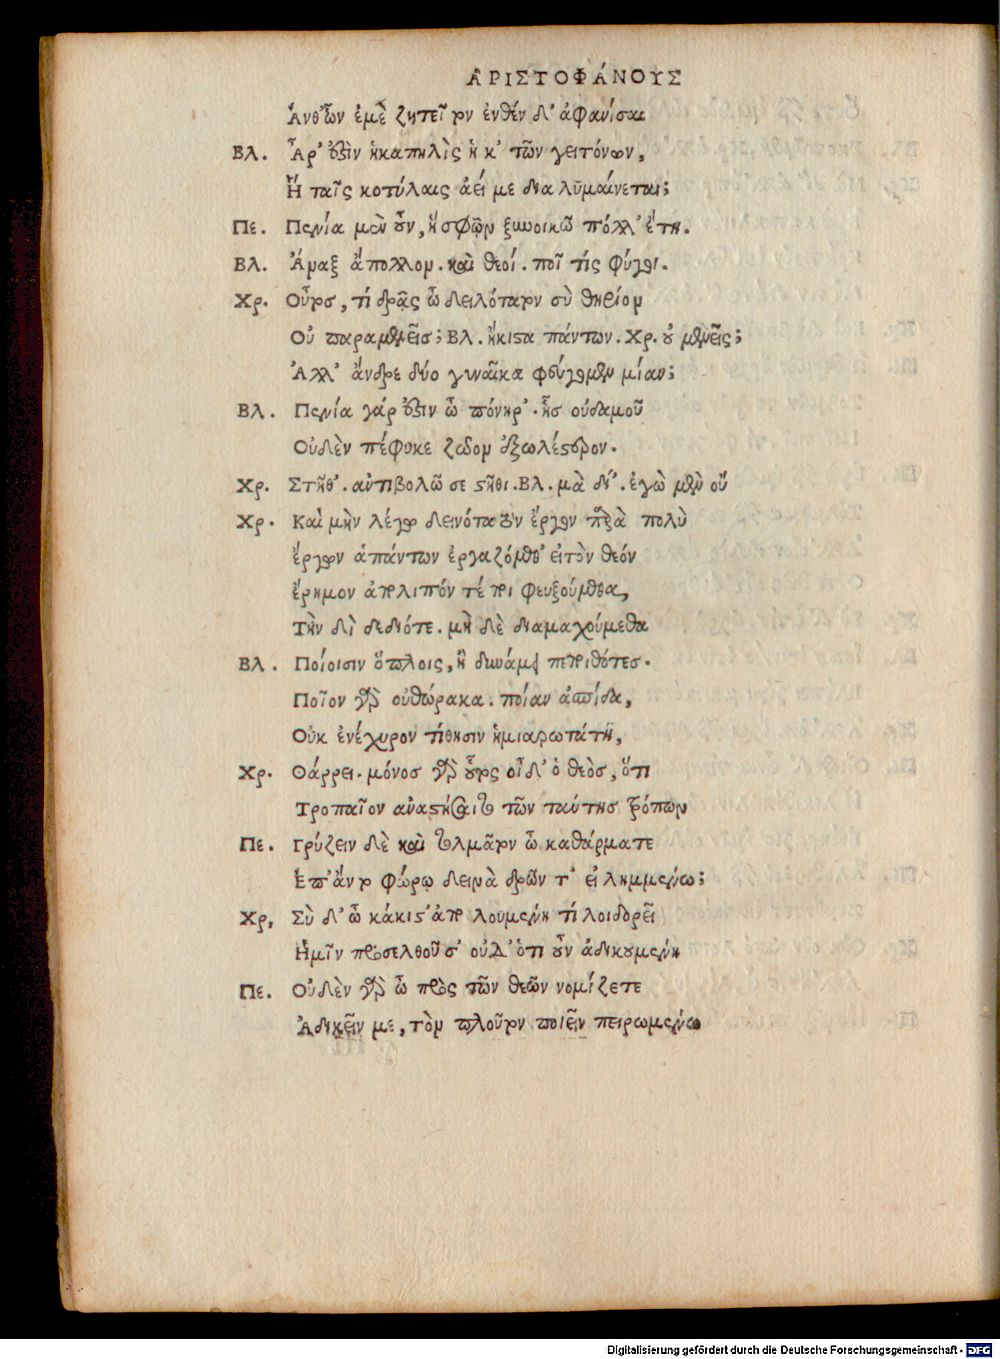 ἈΡΙΣΤΟΦΆΝΟΥΣ
Ἀνθ’ ὧν ἐμὲ ζητεῖτον ἐνθέν δ’ ἀφανίσαι
Βλ. Ἆρ’ ἐστὶν ἡ καπηλὶς ἡ κ’ τῶν γειτόνων,
Ἢ ταῖς κοτύλαις ἀεί με διαλυμαίνεται;
Πε. Πενία μὲν οὖν, ἣ σφῷν ξυνοικῶ πόλλ’ ἔτη.
Βλ. Ἄναξ ἄπολλον. καὶ θεοί. ποῖ τίς φύγῃ.
Χρ. Οὗτος, τί δρᾷς ὦ δειλότατον σὺ θηρίον
Οὐ παραμενεῖς; Βλ. ἥκιστα πάντων. Χρ. οὐ μενεῖς;
Ἀλλ’ ἄνδρε δύο γυναῖκα φεύγομεν μίαν;
Βλ. Πενία γάρ ἐστιν ὦ πόνηρ’. ἧς οὐδαμοῦ
Οὐδὲν πέφυκε ζῶον ἐξωλέστερον.
Χρ. Στῆθ’. ἀντιβολῶ σε στῆθι. Βλ. μὰ δί’. ἐγὼ μὲν οὔ
Χρ. Καὶ μὴν λέγω δεινότατον ἔργον παρὰ πολὺ
ἔργων ἁπάντων ἐργασόμεθ’ εἰ τὸν θεόν
ἔρημον ἀπολιπόντέ ποι φευξούμεθα,
Τὴν δὶ δεδιότε. μὴ δὲ διαμαχούμεθα
Βλ. Ποίοισιν ὅπλοις, ἢ δυνάμει πεποιθότες.
Ποῖον γὰρ οὐ θώρακα. ποίαν ἀσπίδα,
Οὐκ ἐνέχυρον τίθησιν ἡ μιαρωτάτη,
Χρ. Θάρρει. μόνος γὰρ οὗτος οἶδ’ ὁ θεὸς, ὅτι
Τροπαῖον ἀναστήσαιτο τῶν ταύτης τρόπων
Πε. Γρύζειν δὲ καὶ τολμᾶτον ὦ καθάρματε
Ἐπ’ ἀυτοφώρῳ δεινὰ δρῶντ’ εἰλημμένω;
Χρ, Σὺ δ’ ὦ κάκιστ’ ἀπολουμένη τί λοιδορεῖ
Ἡμῖν προσελθοῦσ’ οὐδ’ ὁτιοῦν ἀδικουμένη
Πε. Οὐδὲν γὰρ ὦ πρὸς τῶν θεῶν νομίζετε
Ἀδικεῖν με, τὸν πλοῦτον ποιεῖν πειρωμένω
Digitalisierung gefördert durch die Deutsche Forschungsgemeinschaft - DFG